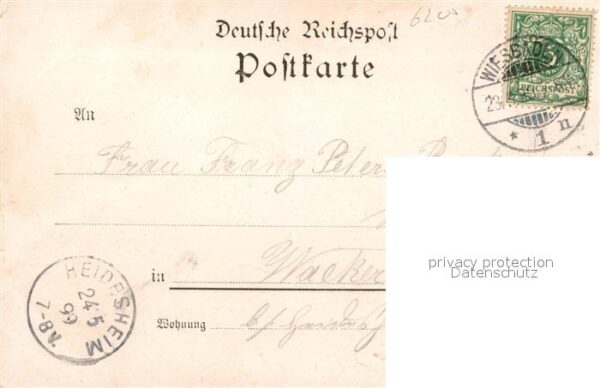 6200
Deutsche Reichspost
Postkarte
WIESBADEN
23
* 1 n
5
REICHSPOST
An
Frau Franz Peter
privacy protection
Datenschutz
HEIDESHEIM
24 5
99
7-8 V.
in
Wacker
Wohnung b/